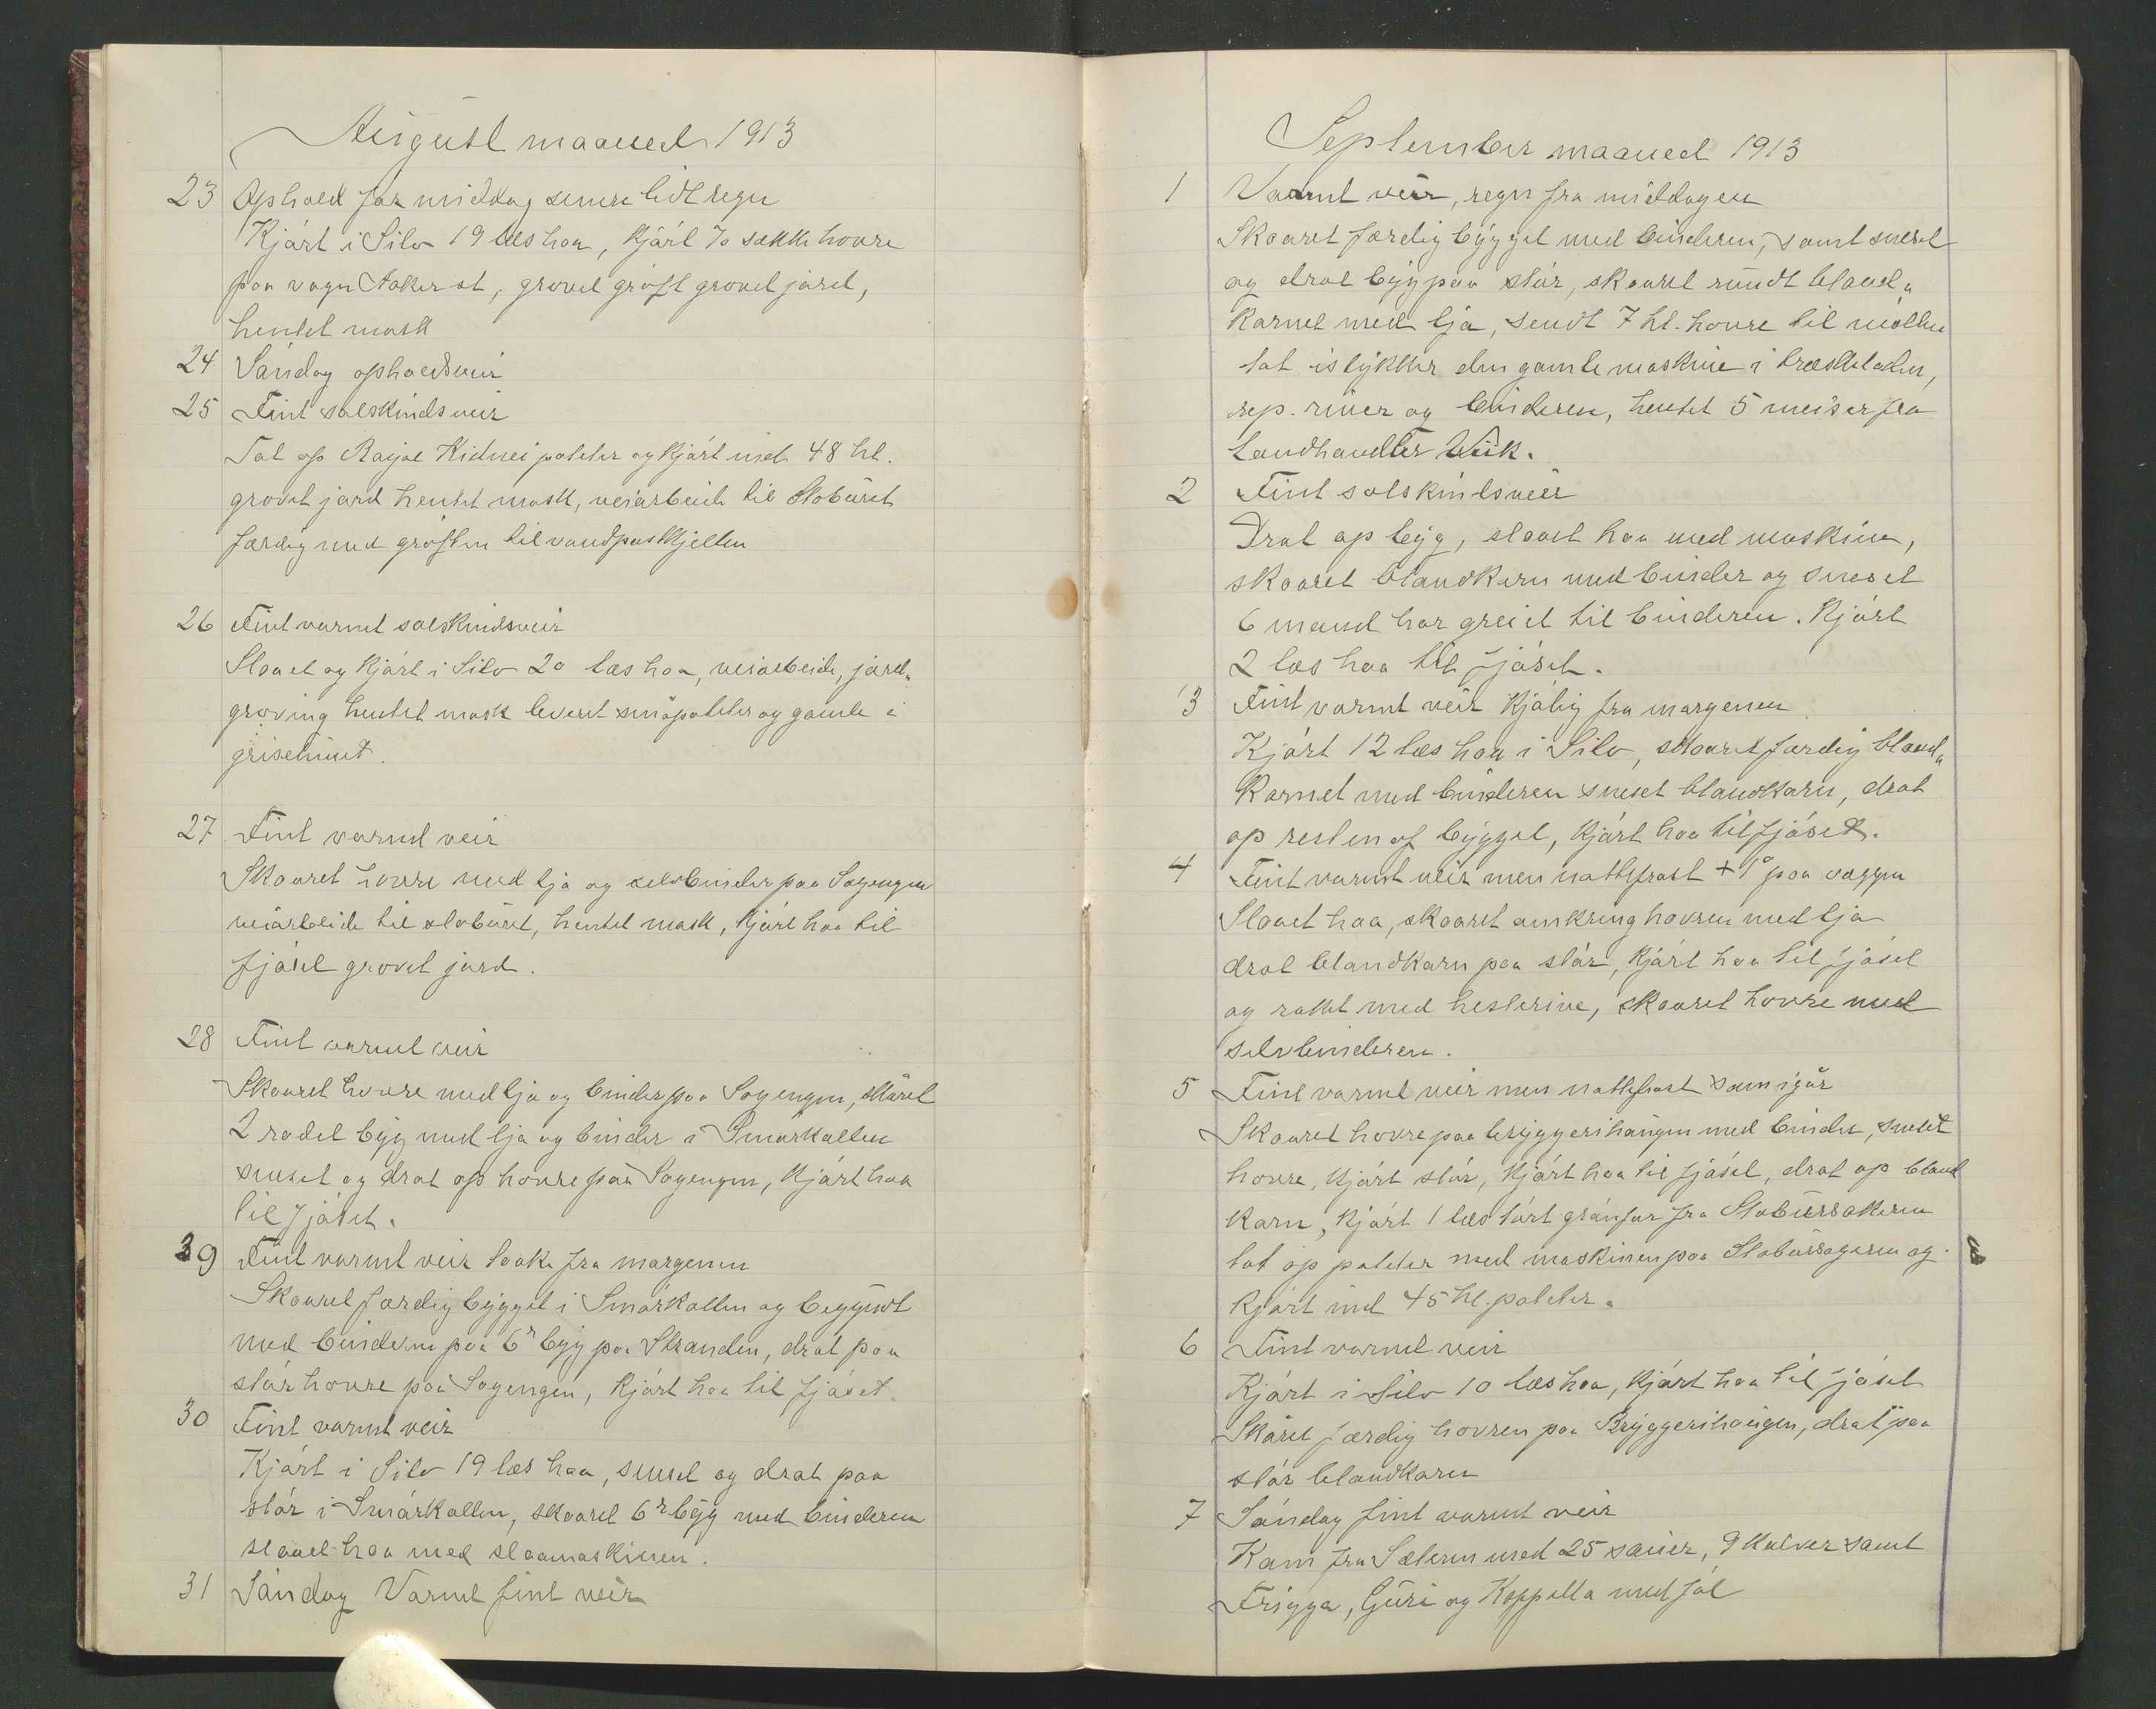 August maaned 1913
23 Ophold før middag senere lidt regn
Kjørt i Silo 19 læs haa, kjørt 70 sække havre
paa vogn Aaker st, gravet grøft gravet jord,
hentet mask
24 Søndag opholdsveir
25 Fint solskindsveir
Tat op Royal Kidnei poteter og kjørt ind 48 hl.
gravet jord hentet mask, veiarbeide til Stabūret
færdig med grøften til vandposkjellen
26 Fint varmt solskindsveir
Slaaet og kjørt i Silo 20 læs haa, veiarbeide, jord„
graving hentet mask levert småpoteter og gamle i
grisehuset.
27 Fint varmt veir
Skaaret havre med ljå og selvbinder paa Sagengen
veiarbeide til stabūret, hentet mask, kjørt haa til
fjøset gravet jord.
28 Fint varmt veir
Skaaret havre med ljå og binder paa Sagengen, skåret
2 radet byg med ljå og binder i Smørkollen
sneset og drat op havre paa Sagengen, kjørt haa
til fjøset.
29 Fint varmt veir taake fra morgenen
Skaaret færdig bygget i Smørkollen og begyndt
med binderen paa 6r byg paa Stranden, drat paa
stør havre paa Sagengen, kjørt haa til fjøset.
30 Fint varmt veir
Kjørt i Silo 19 læs haa, sneset og drat paa
stør i Smørkollen, skaaret 6r byg med binderen
slaaet haa med slaamaskinen.
31 Søndag Varmt fint veir
September maaned 1913
1 Varmt veir, regn fra middagen
Skaaret færdig bygget med binderen, samt sneset
og drat byg paa stør, skaaret rundt bland„
kornet med ljå, sendt 7 hl. havre til møllen
tat istykker den gamle maskine i træskeladen,
rep. river og binderen, hentet 5 meiser fra
Landhandler Wiik.
2 Fint solskindsveir
Drat op byg, slaaet haa med maskine,
skaaret blandkorn med binder og sneset
6 mand har greiet til binderen. Kjørt
2 læs haa til fjøset.
3 Fint varmt veir kjølig fra morgenen
Kjørt 12 læs haa i Silo, skaaret færdig bland„
kornet med binderen sneset blandkorn, drat
op resten af bygget, kjørt haa til fjøset.
4 Fint varmt veir men nattefrost + 1° paa væggen
Slaaet haa, skaaret omkring havren med ljå
drat blandkorn paa stør, kjørt haa til fjøset
og raket med hesterive, skaaret havre med
selvbinderen.
5 Fint varmt veir men nattefrost som igår
Skaaret havre paa bryggerihaugen med binder, sneset
havre, kjørt stør, kjørt haa til fjøset, drat op bland
korn, kjørt 1 læs tørt grønfor fra Stabursakeren
tat op poteter med maskinen paa Stabursageren og
kjørt ind 45 hl. poteter.
6 Fint varmt veir
Kjørt i Silo 10 læs haa, kjørt haa til fjøset
Skåret færdig havren paa Bryggerihaugen, drat paa
stør blandkorn
7 Søndag fint varmt veir
Kom fra Sæteren med 25 sauer, 9 kalver samt
Frigga, Guri og Koppella med føl